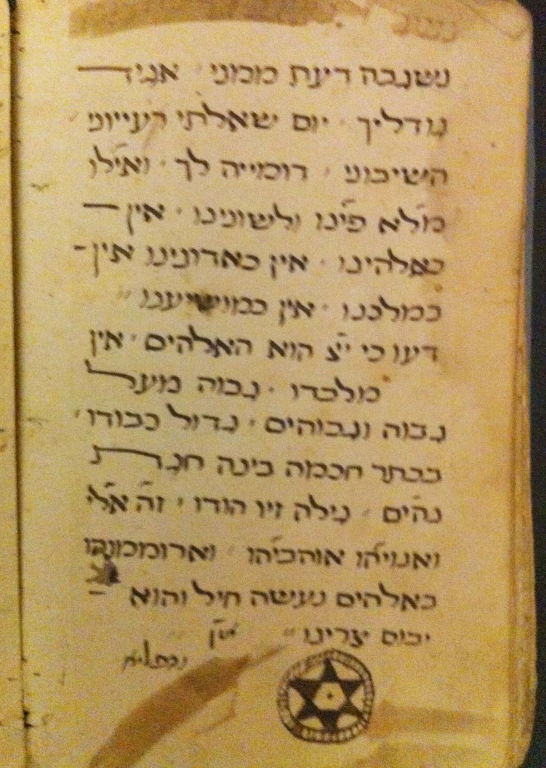 נשגבה דעת ממני · אגיד
גודליך · יום שאלתי רעייוני
השיבוני · דומייה לך · ואילו
מלא פינו ולשונינו · אין
כאלהינו · אין כאדונינו אין
כמלכנו · אין כמושיענו
דעו כי ייצ הוא האלהים · אין
מלבדו · גבוה מעל
גבוה וגבוהים · גדול כבודו ·
בכתר חכמה בינה
גדים · גילה זיו הודו · זה אלי
ואנויהו אוהביהו · וארוממנהו
באלהים נעשה חיל והוא
יבוס צרינו